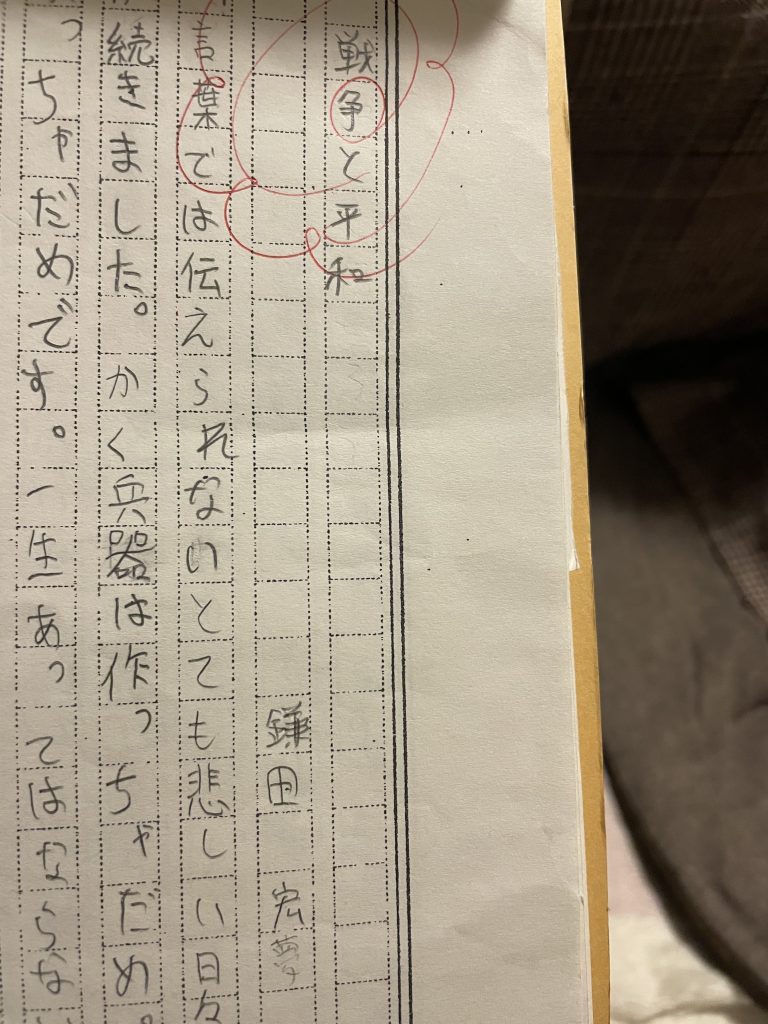 戦争と平和
鎌田 宏夢
言葉では伝えられないとても悲しい日々
続きました。かく兵器は作っちゃだめ。
っちゃだめです。一生あってはならない